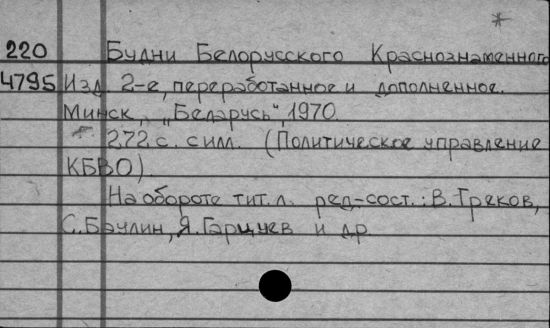 220 Будни Белорусского Краснознаменного
4795 Изд. 2-е, переработанное и дополненное.
Минск, "Беларусь", 1970.
272 с. с илл. (Политическое управление
КБВО)
На обороте тит. л. ред-сост.: В. Греков,
С. Бачлин, Я. Гарцуев и др.